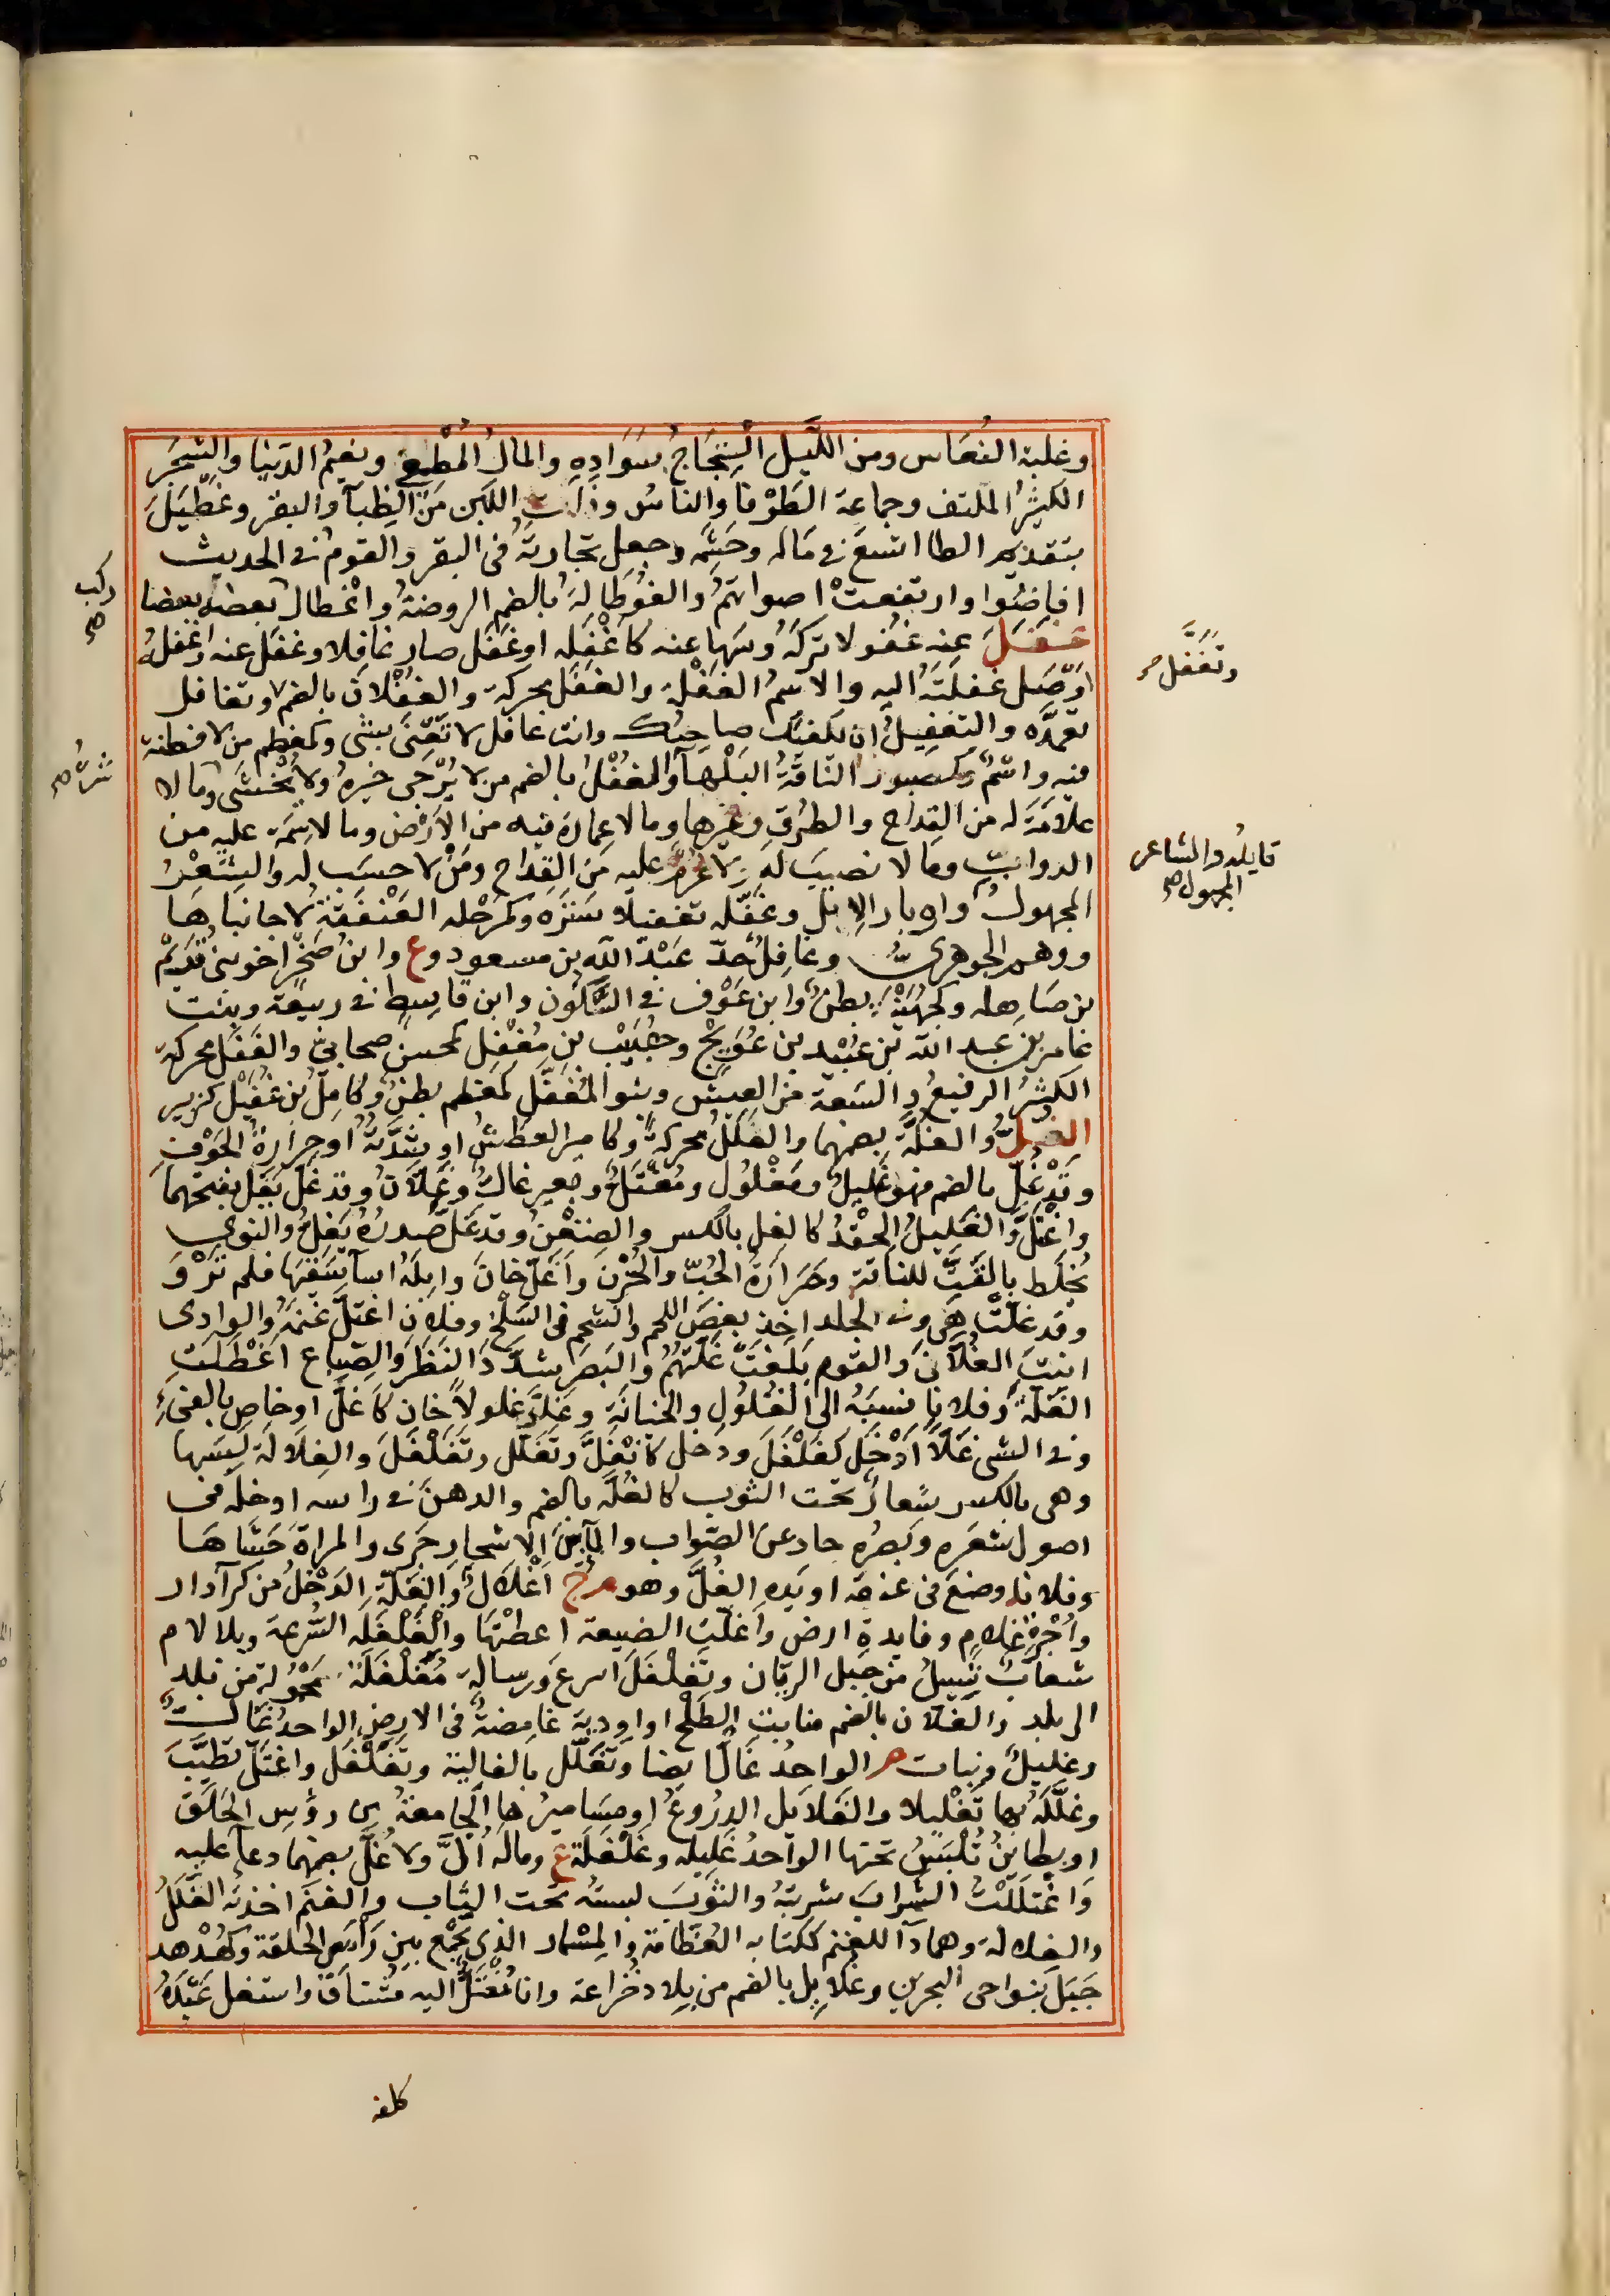 وغلبة النُعَاس ومن اللَّيل الْتِجَاجُ سَوَادِهِ والمالُ المُطْغِي ونعيمُ الدنيا والشجر
الكثيرُ الملتف وجماعة الطَرْفا والناسُ وذات اللبَن مَنْ الظِبآ والبقر وغَطْيَلَ
بتقديم الطا اتسع في ماله وحَشَمِه وجعل تجارتَهُ في البقر والقومُ في الحديث
افاضُوا وارتفعتْ اصواتهُم والغُوطَالَةُ بالضم الروضةُ واغْطالّ بعضه بعضا
ركب صح
غفل عنه غفولا تركهُ وسَهَا عنه كاَغْفَلَه اوغَفَل صار غافلا وغفل عنه واغفله
وتَغَفَّل
اوْصَل غفلتَهُ اليه والاسمُ الغَفْلَة والغَفَل محركة والغُفْلان بالضم وتغافل
تعمدَّه والتغفيلُ ان يكفيك صاحبُك وانت غافل لا تَعْتَنى بشى وكمعظم من لا فطنة
فيه واسْمٌ وكصبور النّاقَةُ البَلْهآ والغُفْلُ بالضم من لا يُرْجَى خيرهُ ولا يُخْشَى وما لا
شرُّه صح
علامَةَ له من القداح والطُرقِ وغيرها وما لا عِمارة فيه من الاَرْض وما لا سِمَة عليه من
الدوابِّ وما لا نصيبَ له ولا غرم عليه من القِدَاح ومَنْ لا حسَب له والشعْرُ
قايلُه والشاعر المجهول صح
المجهولُ واوبار الابل وغَفَّله تغفيلا سَتَرَه وكمرْحله العَنْفَقَةُ لا جانباهَا
ووهم الجوهرىُّ وغافِلُ جدّ عَبْدُ الله بن مسعود وع وابنُ صَخْرٍ اخو بنى قُرَيْم
بن صَاهِلة وكجُهَيْنَة بطنٌ وابن عَوْف في السَّكُون وابن قاسط في ربيعة وبنت
عامر بن عبد الله بن عُبَيْد بن عُوَيْج وهُبَيْب بن مُغْفِل كمحسن صحابىّ والغَفَل محركة
الكثيرُ الرفيعُ والسَعة من العيش وبنو المُغَفَّل كمعظم بطنٌ وكامِلُ بن غُفَيْل كزبير
الغُلّ والغلَّةُ بضمهما والغَلَلُ محركةً وكامير العطشُ او شدَّتهُ او حرارةُ الجَوْفِ
وقَدْ غُلّ بالضم فهو غَليلٌ ومَغْلُولٌ ومُغْتَلٌّ وبعير غالٌّ وغَلّانُ وقد غَلَّ يَغَلّ بفتحهما
واغْتَلَّ والغَليلُ الحِقْدُ كالغِل بالكسر والضِغْنُ وقد غَلَّ صدرُهُ يَغِلُّ والنوى
يُخْلَط بالقَتِّ للناقة وحَرَارَةُ الحُبّ والحُزْن واَغَلَّ خانَ وابلَهُ اسآ سَقْيَهَا فلم تَرْوَ
وقد غلَّتْ هى وفي الجلد اخذ بعضَ اللحم والشحم في السَلْخ وفلان اغتلَّ غنمَهُ والوادى
انبتَ الغُلّانَ والقوم بَلغَتْ غَلّتهُمْ والبَصَر شدَّدَ النَظَرَ والضِياع اَعْطَتِ
الغَلّةَ وفلانا نسبَهُ الى الغُلُولِ والخيانَةِ وغَلَّ غلولاً خان كاَغَلَّ او خاص بالفَىْءِ
وفي الشى غَلّاً اَدْخَل كغَلْغَلَ ودَخَل كانْغَلَّ وتَغَلّل وتَغَلْغَلَ والغِلَالَة لَبِسَها
وهى بالكسر شِعارٌ تحت الثوب كالغُلّه بالضم والدهنَ في راسه ادخله فى
اصول شعَره وبَصَرُه حاد عن الصَواب والمآءُ بين الاشجار جَرى والمراةَ حَشَاهَا
وفلانا وضعَ فى عنقه او يَدِه الغُلَّ وهو مرج اَغْلَالٌ والغَلّةُ الدَخْلُ من كرآ دار
واُجْرَةِ غلام وفايدةِ ارضٍ واَغلّتِ الضيعة اعطتْهَا والغَلْغَلَه السُّرعة وبلالام
شعابٌ تَسيلُ من جبل الريّان وتَغَلْغَلَ اسرعَ ورسالة مُغَلْغَلَةٌ محْمُولة من بَلَد
الى بلد والغُلّان بالضم منابتِ الطَلْح او اودية غامِضةٌ فى الارض الواحدُ غالٌّ
وغليلٌ ونبات م الواحدُ غالٌ ايضا وتَغلّل بالغالية وتَغَلْغَل واغْتَلّ تَطَيَّبَ
وغلّلَهُ بها تَغْليلا والغَلَايل الدِرُوعُ او مسَاميرُها الجامعةُ بين رؤس الحَلَق
او بطايِنُ تُلْبَسُ تحتها الواحدُ غَليله وغَلْغَلَة ع ومالَه اُلَّ ولا غُلَّ بضمهما دعآ عليه
وَاغْتَلَلْتُ الشرابَ شربتُه والثَوْبَ لبسته تحت الثياب والغنمُ اخذتهُ الغَلَلُ
والغلالة وهما دآ للغنم ككتابه العُظّامَة والمِسْمار الذى يَجْمَع بين رَأسَى الحلقة وكهُدْهد
جَبَل بنواحى البحرين وغُلَايل بالضم من بِلاد خُزاعة وانا مُغْتَلٌّ اليه مُشْتاَقٌ واستغل عَبْدَهُ
كلفه